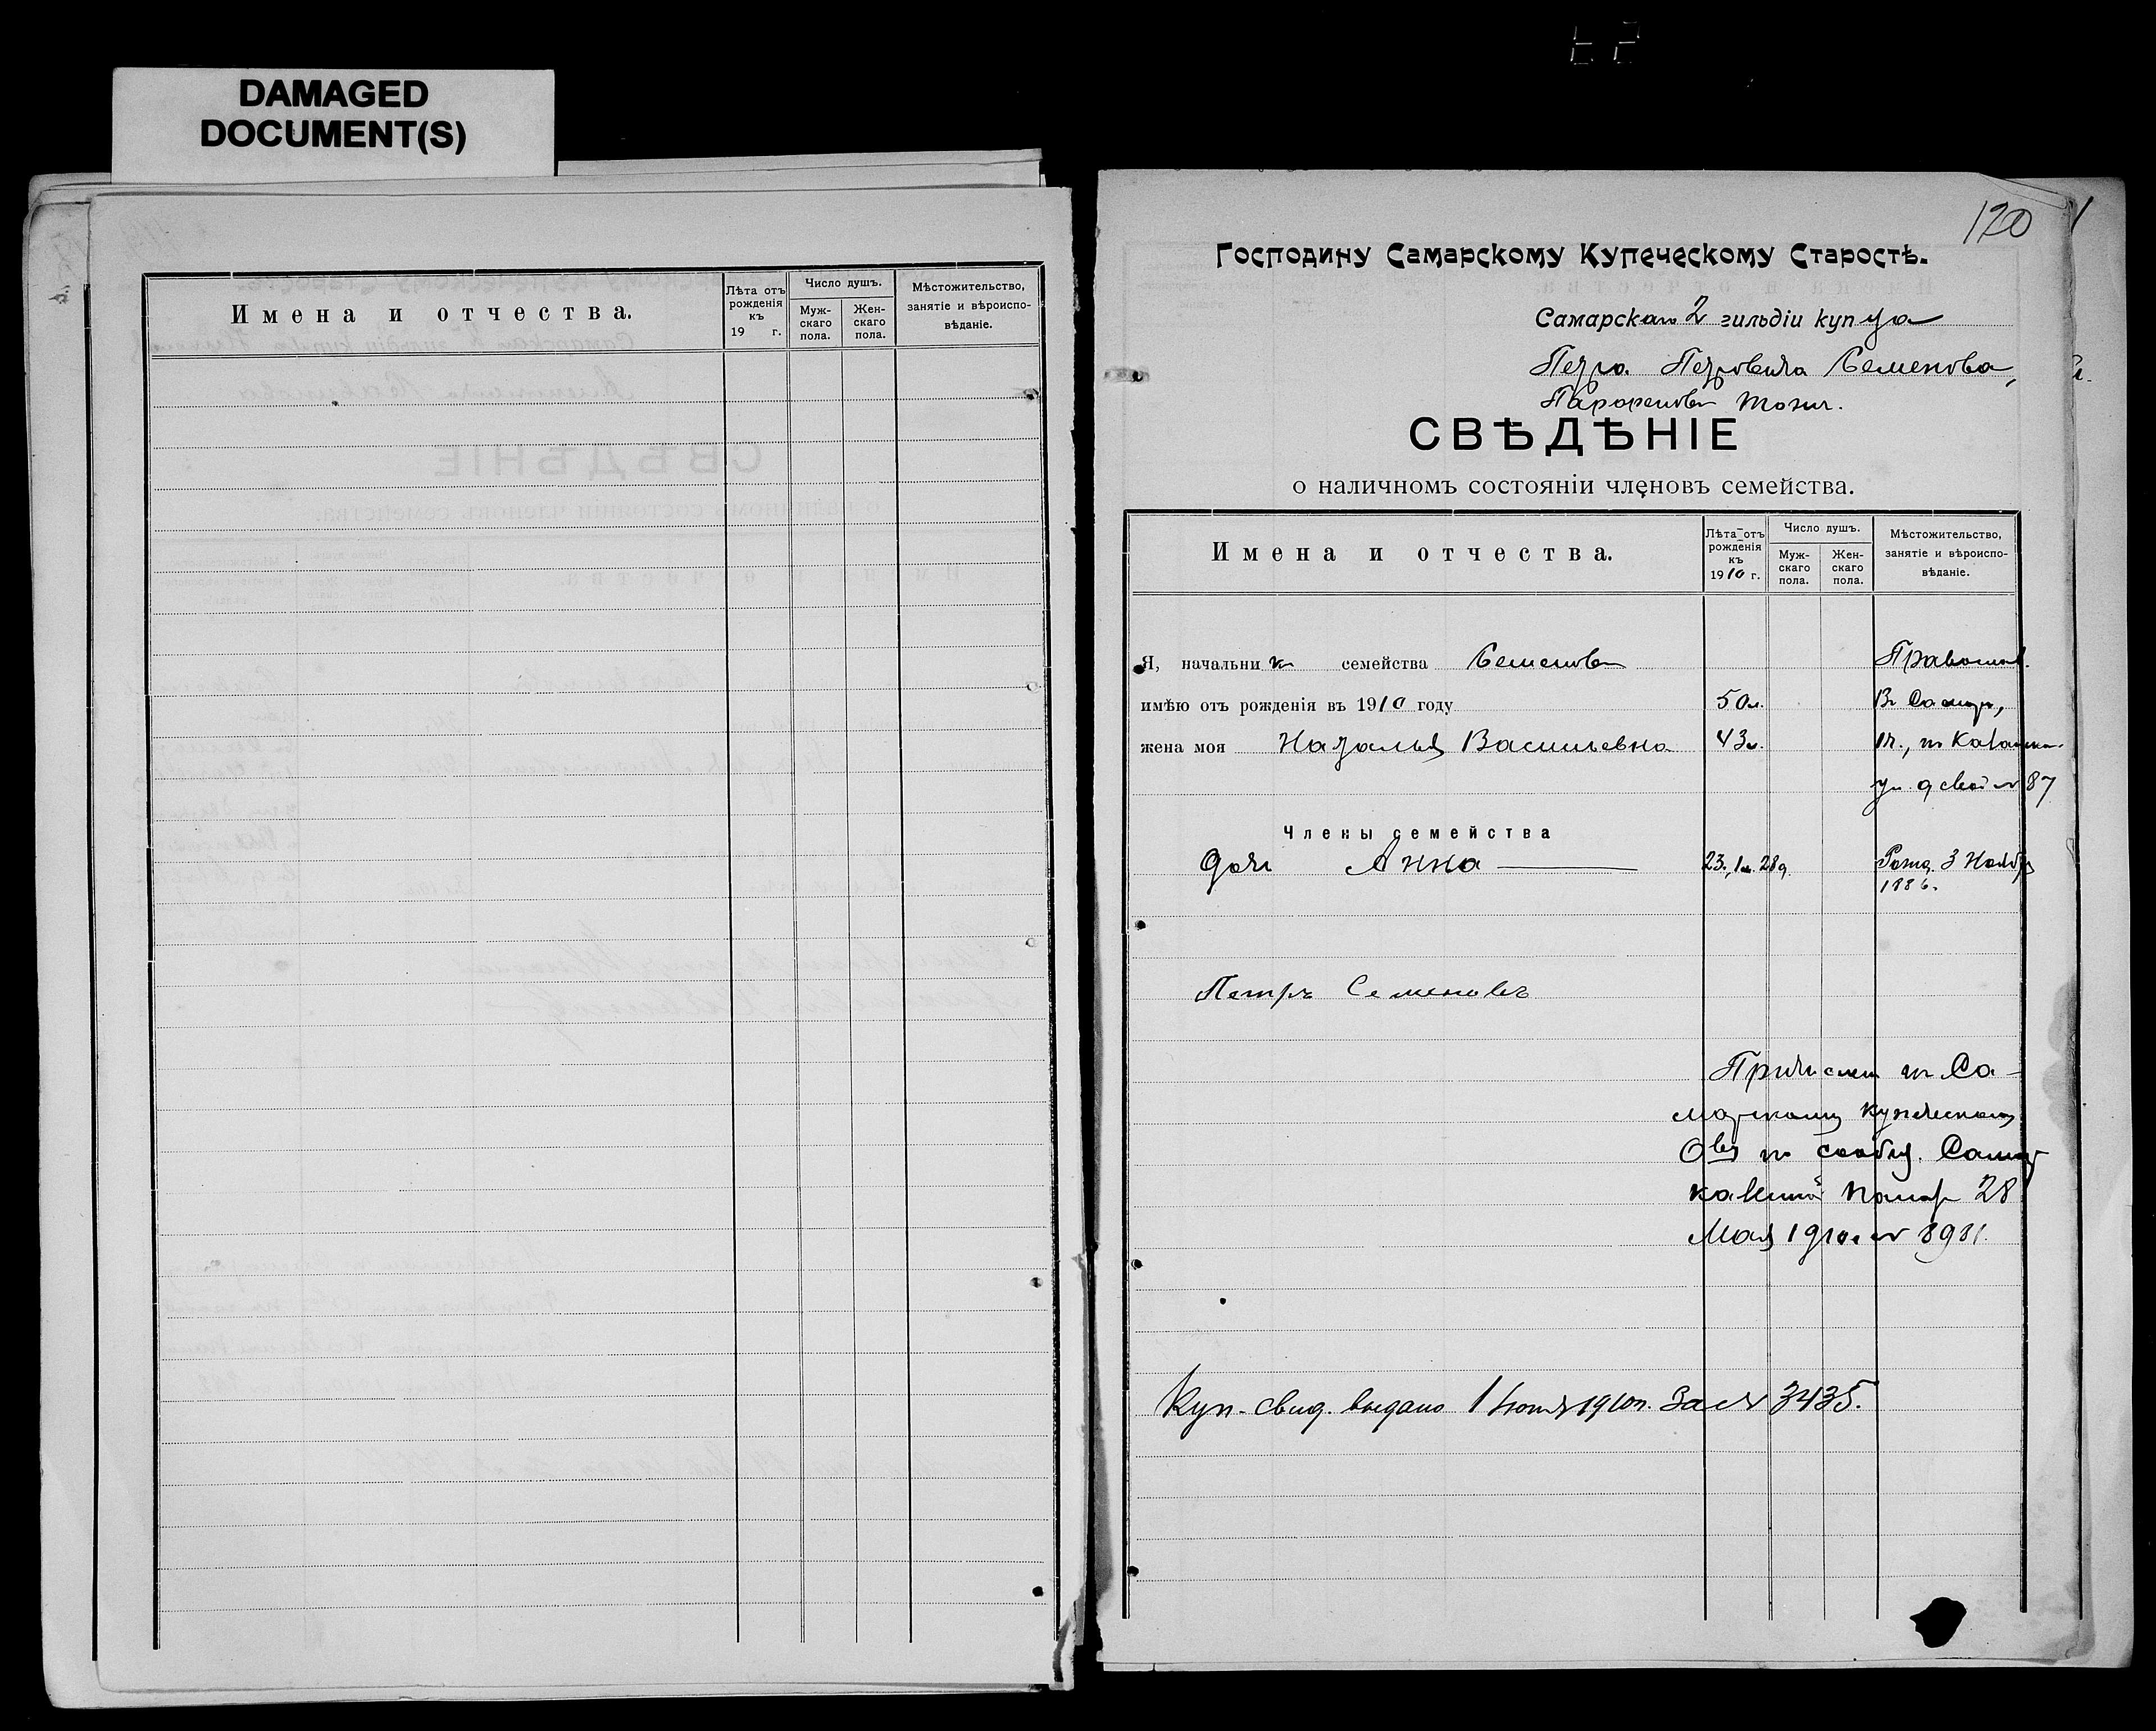 DAMAGED
DOCUMENT(S)
Имена и отчества.
Лѣта отъ рожденія къ 19 г.
Число душъ.
Мужскаго пола.
Женскаго пола.
Мѣстожительство, занятіе и вѣроисповѣданіе.
120
Господину Самарскому Купеческому Старостѣ.
Самарскаго 2 гильдіи купца
Петра Петровича Семенова,
СВѢДѢНІЕ
о наличномъ состояніи членовъ семейства.
Имена и отчества.
Лѣта отъ рожденія къ 1910 г.
Число душъ.
Мужскаго пола.
Женскаго пола.
Мѣстожительство, занятіе и вѣроисповѣданіе.
Я, начальникъ семейства Семеновъ Православ.
имѣю отъ рожденія въ 1910 году 50 л. Въ Самарѣ,
жена моя Наталья Васильевна 43 л.
ул. д свой № 87
Члены семейства
Дочь Анна 23., 1 м. 28 д. Рожд. 3 Ноября
1886.
Петръ Семеновъ
Причислен къ Са-
марскому купеческому
О-ву по сообщ. Самар
казенной палаты 28
Мая 1910 г № 8981.
Куп. свид. выдано 1 Іюня 1910 г. за № 3435.